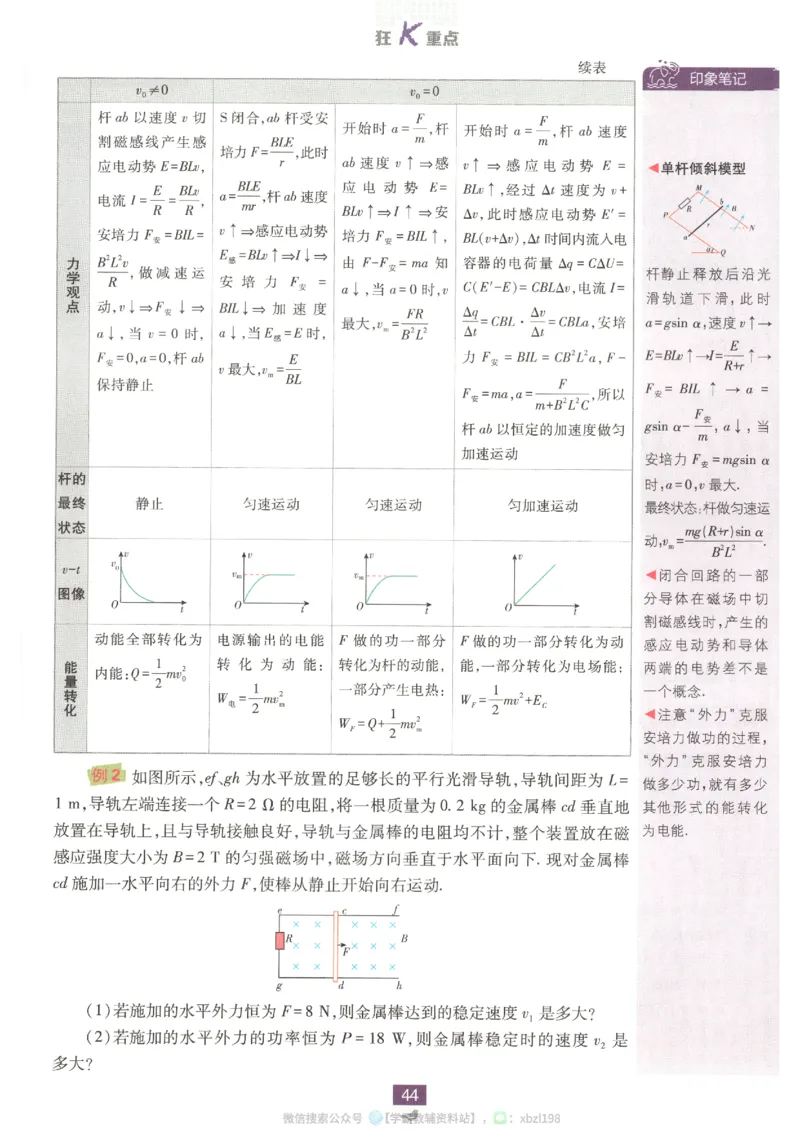 狂K重点
续表
v₀≠0
v₀=0
力学观点
杆 ab 以速度 v 切
割磁感线产生感
应电动势 E=BLv,
电流 I=E/R=BLv/R,
安培力 F安=BIL=
B²L²v/R,做减速运
动,v↓⇒F安↓⇒
a↓,当 v=0 时,
F安=0,a=0,杆 ab
保持静止
S 闭合,ab 杆受安
培力 F=BLE/r,此时
a=BLE/mr,杆 ab 速度
v↑⇒感应电动势
E感=BLv↑⇒I↓⇒
安培力 F安=
BIL↓⇒加速度
a↓,当 E感=E 时,
v 最大,vₘ=E/BL
开始时 a=F/m,杆
ab 速度 v↑⇒感
应电动势 E=
BLv↑⇒I↑⇒安
培力 F安=BIL↑,
由 F-F安=ma 知
a↓,当 a=0 时,v
最大,vₘ=FR/B²L²
开始时 a=F/m,杆 ab 速度
v↑⇒感应电动势 E=
BLv↑,经过 Δt 速度为 v+
Δv,此时感应电动势 E'=
BL(v+Δv),Δt 时间内流入电
容器的电荷量 Δq=CΔU=
C(E'-E)=CBLΔv,电流 I=
Δq/Δt=CBL·Δv/Δt=CBLa,安培
力 F安=BIL=CB²L²a,F-
F安=ma,a=F/(m+B²L²C),所以
杆 ab 以恒定的加速度做匀
加速运动
杆的
最终
状态
静止
匀速运动
匀速运动
匀加速运动
v-t
图像
v
v₀
O
t
v
vₘ
O
t
v
vₘ
O
t
v
O
t
能量转化
动能全部转化为
内能:Q=1/2 mv₀²
电源输出的电能
转化为动能:
W电=1/2 mvₘ²
F 做的功一部分
转化为杆的动能,
一部分产生电热:
W_F=Q+1/2 mvₘ²
F 做的功一部分转化为动
能,一部分转化为电场能:
W_F=1/2 mv²+E_C
例2 如图所示,ef、gh 为水平放置的足够长的平行光滑导轨,导轨间距为 L=
1 m,导轨左端连接一个 R=2 Ω 的电阻,将一根质量为 0.2 kg 的金属棒 cd 垂直地
放置在导轨上,且与导轨接触良好,导轨与金属棒的电阻均不计,整个装置放在磁
感应强度大小为 B=2 T 的匀强磁场中,磁场方向垂直于水平面向下.现对金属棒
cd 施加一水平向右的外力 F,使棒从静止开始向右运动.
e c f
R F B
g d h
(1)若施加的水平外力恒为 F=8 N,则金属棒达到的稳定速度 v₁ 是多大?
(2)若施加的水平外力的功率恒为 P=18 W,则金属棒稳定时的速度 v₂ 是
多大?
印象笔记
◀单杆倾斜模型
M
R b B
P
r N
a
α Q
杆静止释放后沿光
滑轨道下滑,此时
a=gsin α,速度 v↑→
E=BLv↑→I=E/(R+r)↑→
F安=BIL↑→a=
gsin α-F安/m,a↓,当
安培力 F安=mgsin α
时,a=0,v 最大.
最终状态:杆做匀速运
动,vₘ=mg(R+r)sin α/B²L².
◀闭合回路的一部
分导体在磁场中切
割磁感线时,产生的
感应电动势和导体
两端的电势差不是
一个概念.
◀注意“外力”克服
安培力做功的过程,
“外力”克服安培力
做多少功,就有多少
其他形式的能转化
为电能.
44
微信搜索公众号 【学霸教辅资料站】, : xbzl198